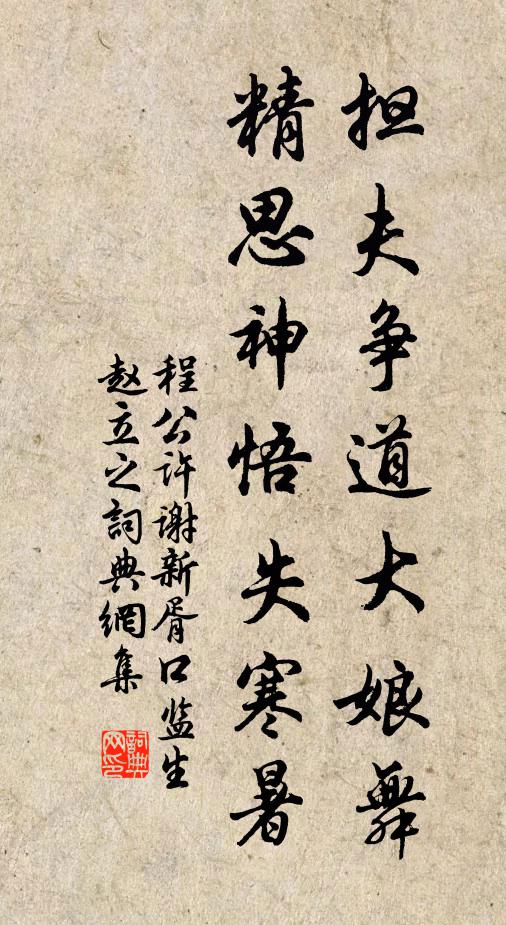 担夫争道大娘舞
精思神悟失寒暑
程公许谢新胥口监生
赵立之詞典網集
詞典网印